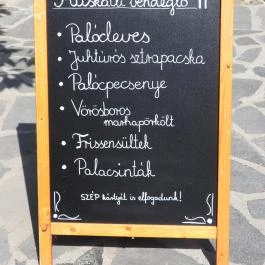 Muskátli vendéglő
• Palócleves
• Juhtúrós sztrapacska
• Palócpecsenye
• Vörösboros
marhapörkölt
• Frissensültek
• Palacsinták
SZÉP kártyát is elfogadunk!